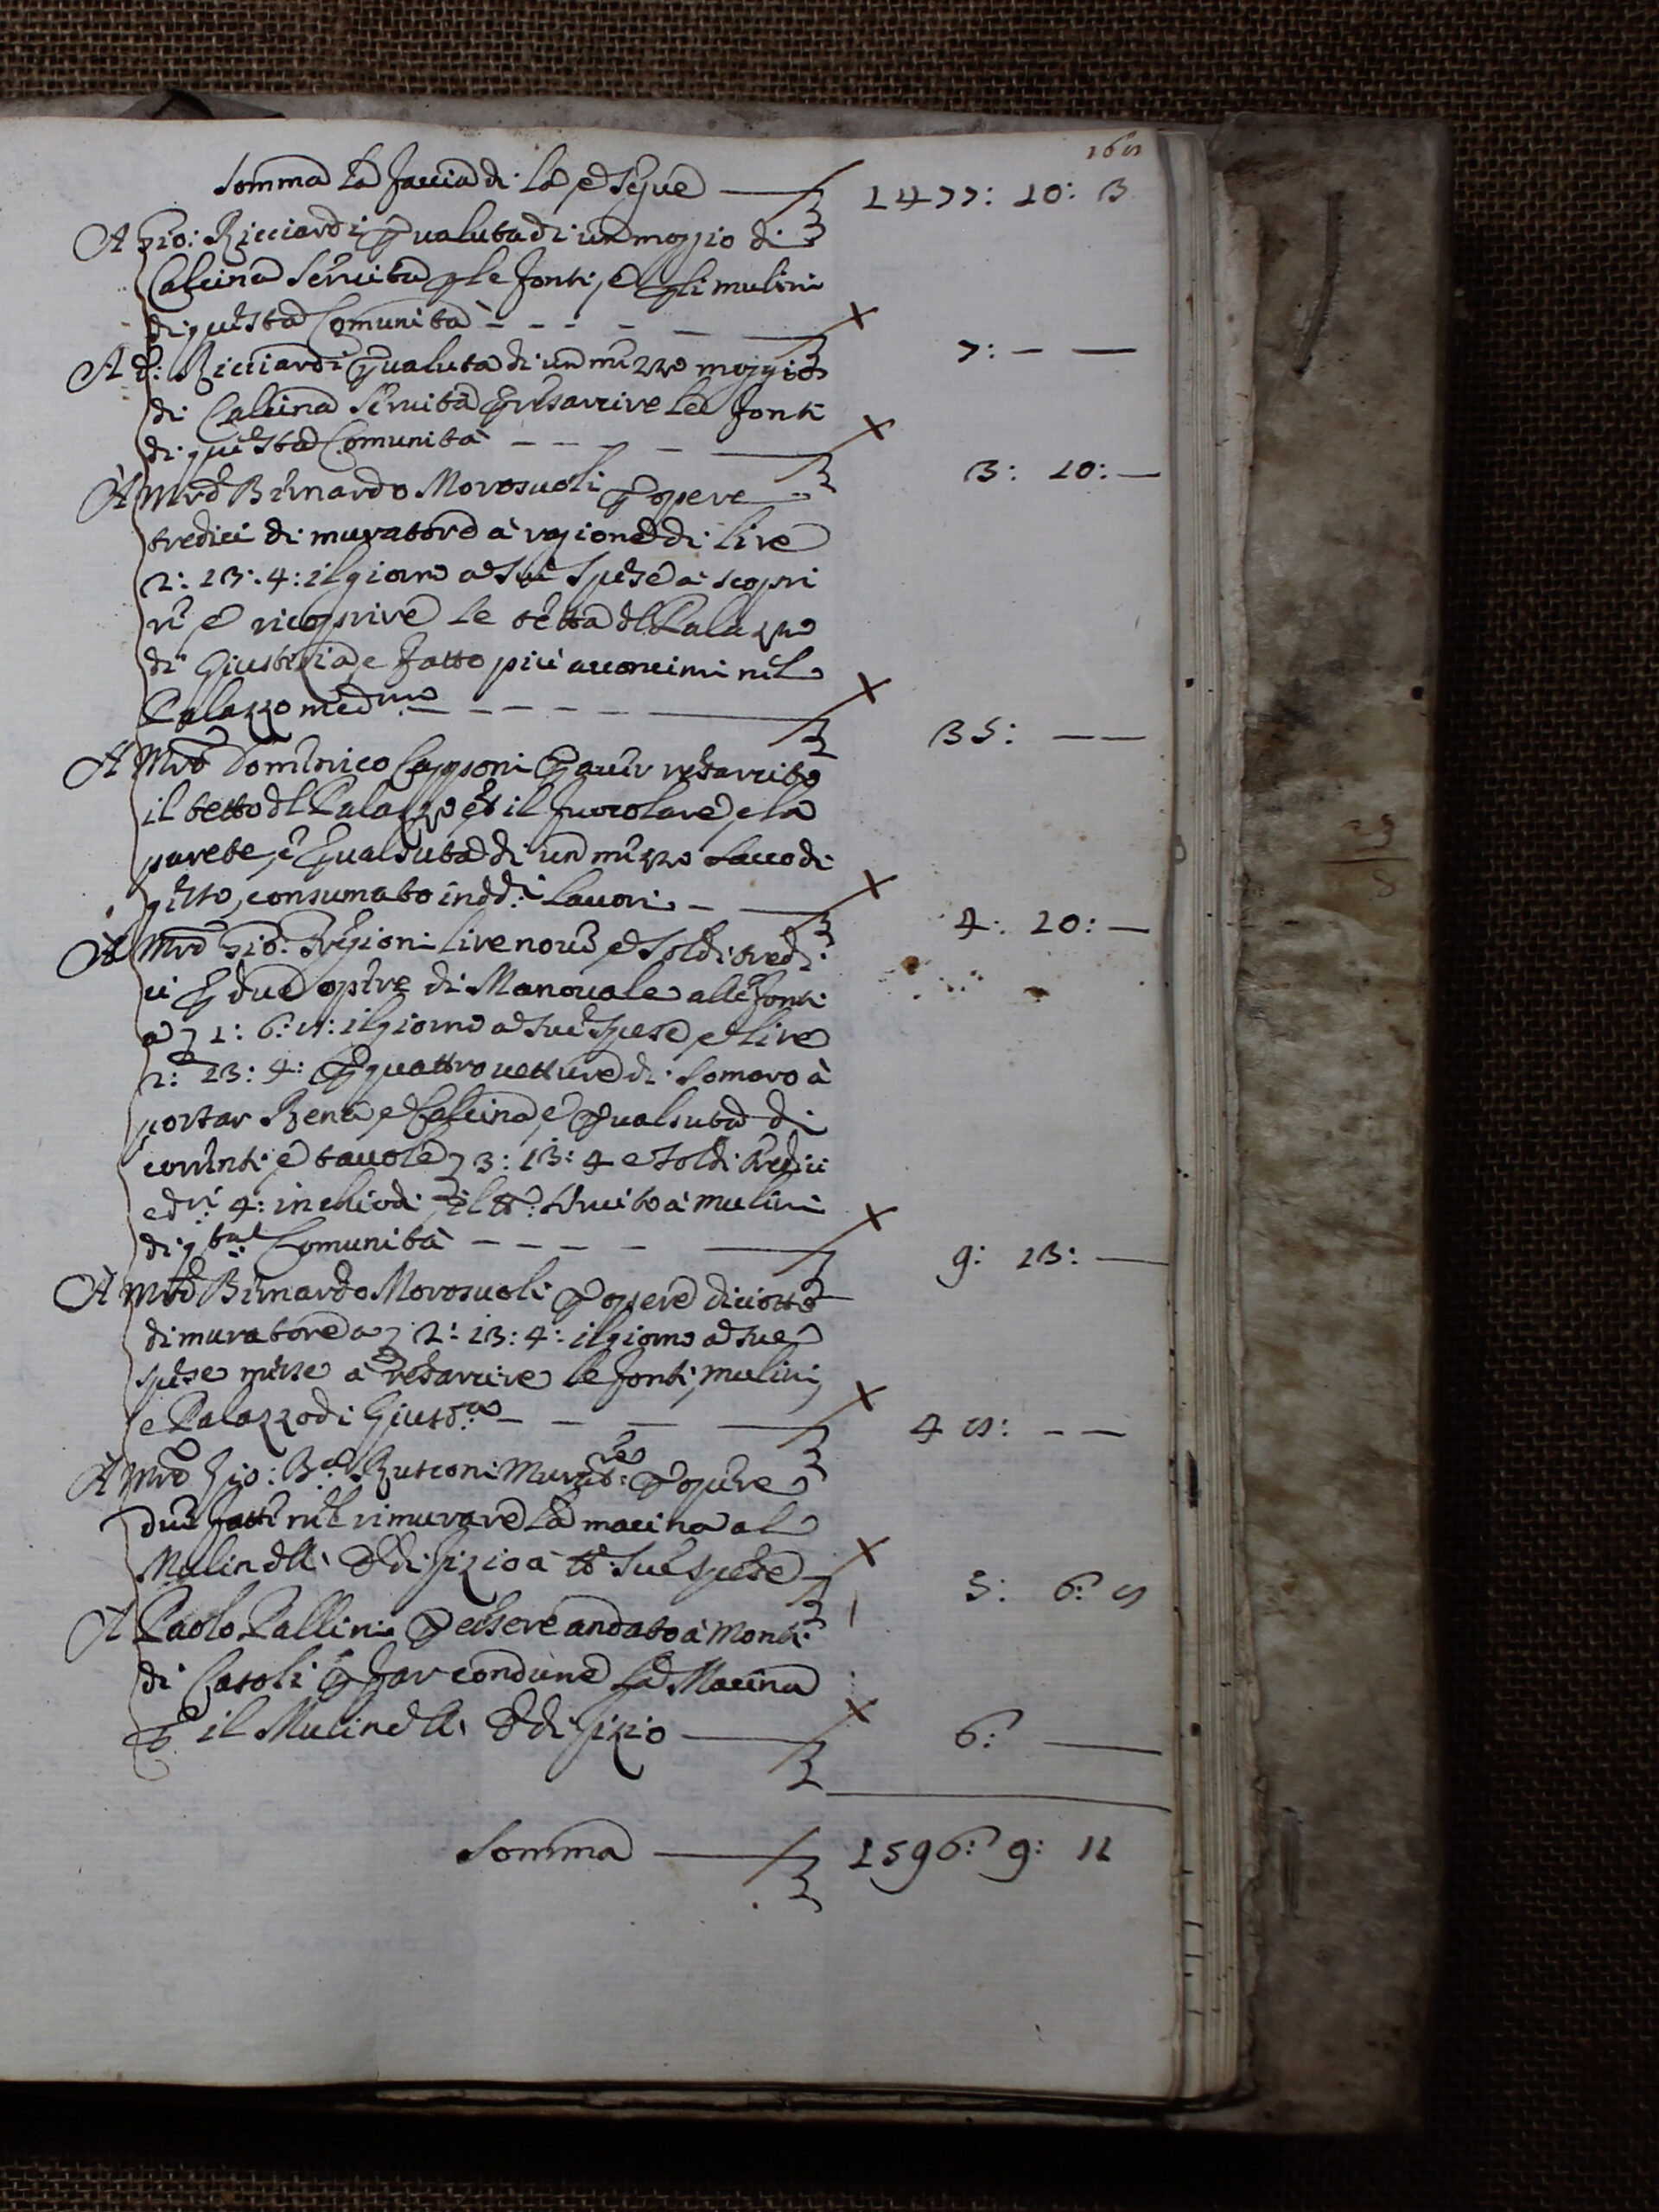 168
Somma la faccia di là e segue — 1477: 10: 3
A Gio: Ricciardi p valuta di un moggio di
Calcina servita p le fonti, e p li mulini
di questa Comunità — 7: — —
A d: Ricciardi p valuta di un mezzo moggio
di Calcina servita p resarcire le fonti
di questa Comunità — 3: 10: —
A Mro Bernardo Morosuoli p opere
tredici di muratore à ragione di lire
2: 13: 4: il giorno a sue spese a scopri
re e ricoprire le tetta del Palazzo
di Giustizia e fatto più acconcimi nel
Palazzo medmo — 35: — —
A Mro Domenico Capponi p aver resarcito
il tetto del Palazzo et il fuocolare, e la
parete, e p valsuta di un mezzo sacco di
gesso, consumato in dd:i lavori — 4: 10: —
A Mro Gio: lire nove e soldi tredi
ci p due opere di Manovale alle fonti
a 1: 6: 8: il giorno a sue spese e lire
2: 13: 4: p quattro vetture di Somaro à
portar Rena, e Calcina, e p valsuta di
correnti e tavole 3: 13: 4 e soldi tredici
e dri 4: in chiodi, il tt:o servito a mulini
di q:ta Comunità — 9: 13: —
A Mro Bernardo Morosuoli p opere diciotto
di muratore a 2: 13: 4: il giorno a sue
spese messe à resarcire le fonti, mulini,
e Palazzo di Giust:a — 48: — —
A Mro Gio: Ba Rusconi Murat:re p opere
due fatte nel rimurare la macina al
Mulin dell' Edifizio à tt:e sue spese — 5: 6: 8
A Paolo Pallini p essere andato à Monti
di Casoli p far condurre la Macina
p il Mulin dell' Edifizio — 6: —
Somma — 1596: 9: 11